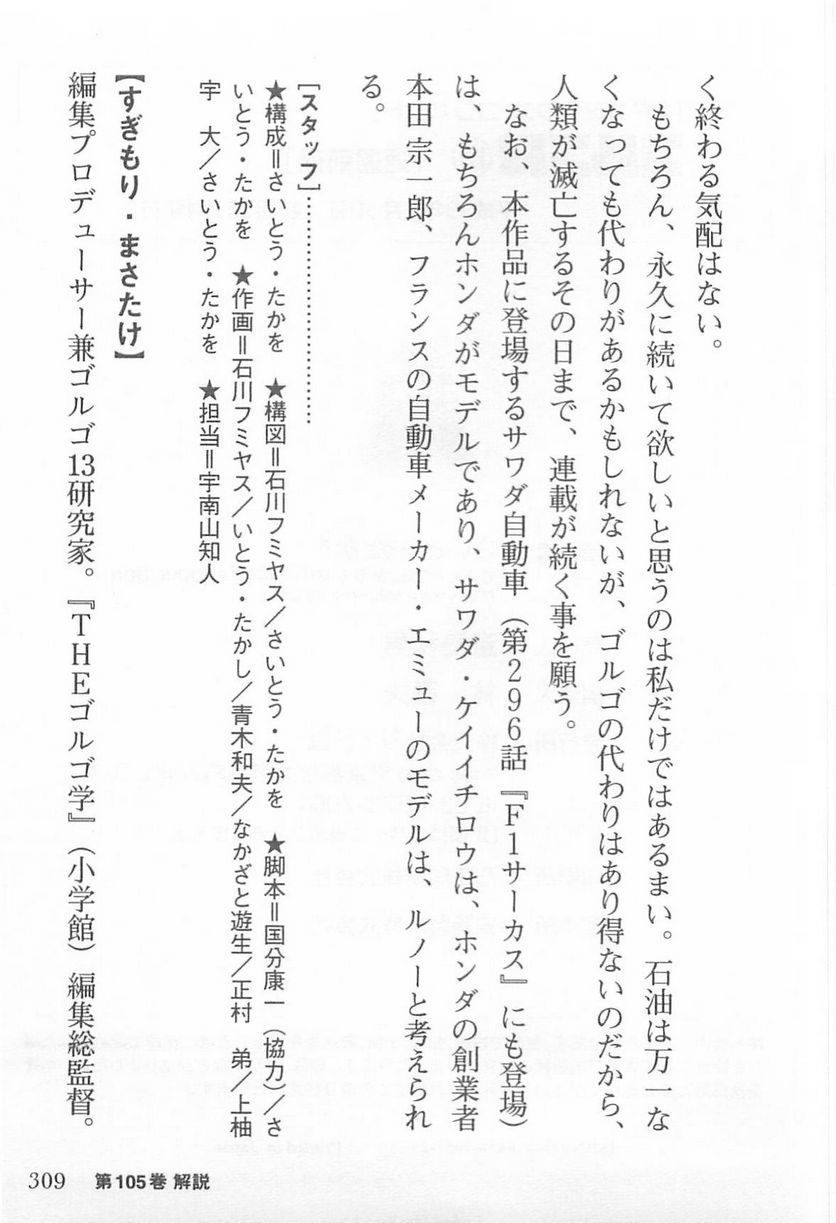 く終わる気配はない。
もちろん、永久に続いて欲しいと思うのは私だけではあるまい。石油は万一な
くなっても代わりがあるかもしれないが、ゴルゴの代わりはあり得ないのだから、
人類が滅亡するその日まで、連載が続く事を願う。
なお、本作品に登場するサワダ自動車（第296話『F1サーカス』にも登場）
は、もちろんホンダがモデルであり、サワダ・ケイイチロウは、ホンダの創業者
本田宗一郎、フランスの自動車メーカー・エミューのモデルは、ルノーと考えられ
る。
[スタッフ]…………………………
★構成＝さいとう・たかを　★構図＝石川フミヤス/さいとう・たかを　★脚本＝国分康一（協力）/さ
いとう・たかを　★作画＝石川フミヤス/いとう・たかし/青木和夫/なかざと遊生/正村　弟/上柚
宇　大/さいとう・たかを　★担当＝宇南山知人
【すぎもり・まさたけ】
編集プロデューサー兼ゴルゴ13研究家。『THEゴルゴ学』（小学館）編集総監督。
309 第105巻 解説